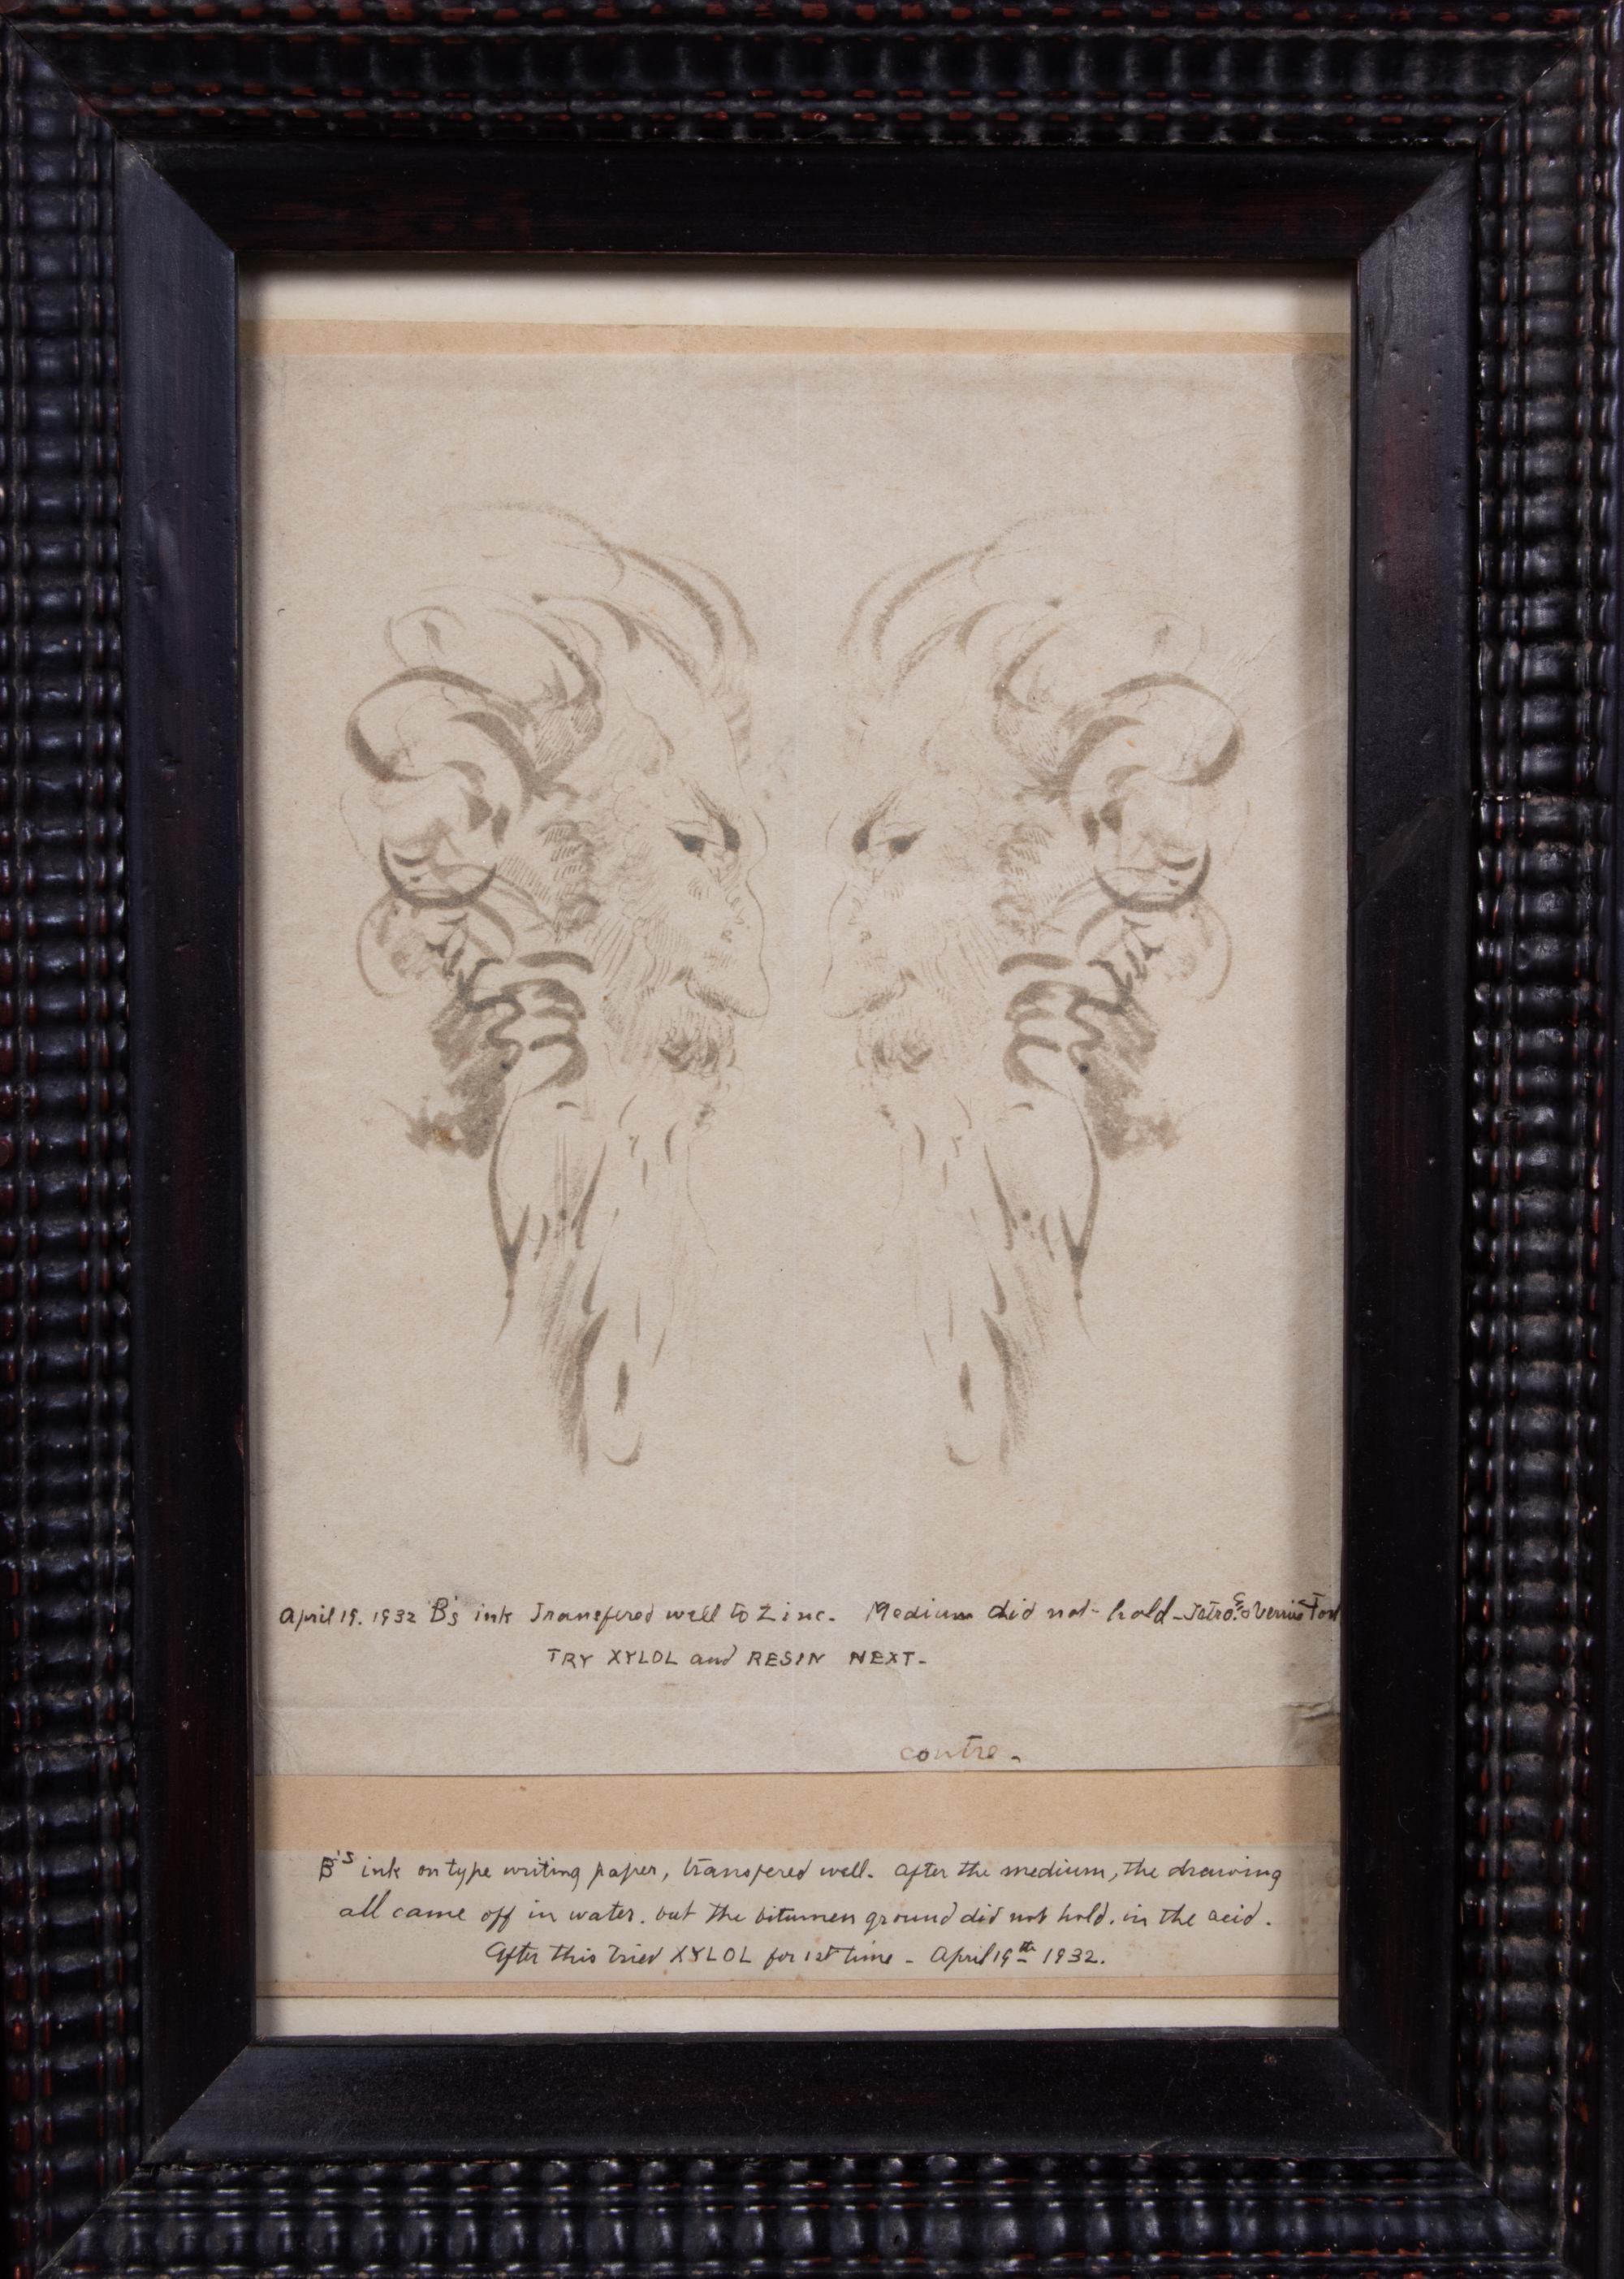 April 19. 1932 B's ink Transfered well to Zinc. Medium did not hold -
TRY XYLOL and RESIN NEXT -
contre -
B's ink on type writing paper, transfered well. After the medium, the drawing
all came off in water. but the bitumen ground did not hold. in the acid.
After this tried XYLOL for 1st time - April 19th 1932.